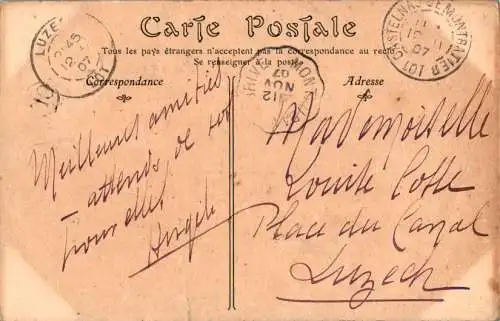 Carte Postale
Tous les pays étrangers n'acceptent pas la correspondance au recto
Se renseigner à la poste
Correspondance
Adresse
LUZE
12 -11
07
LOT
CASTELNAU-DE-MONTRATIER (LOT)
07
MONT
12
NOV
07
Meilleures amitiés
J'attends de tes
nouvelles
Angèle
Mademoiselle
Louise Coste
Place du Canal
Luzech